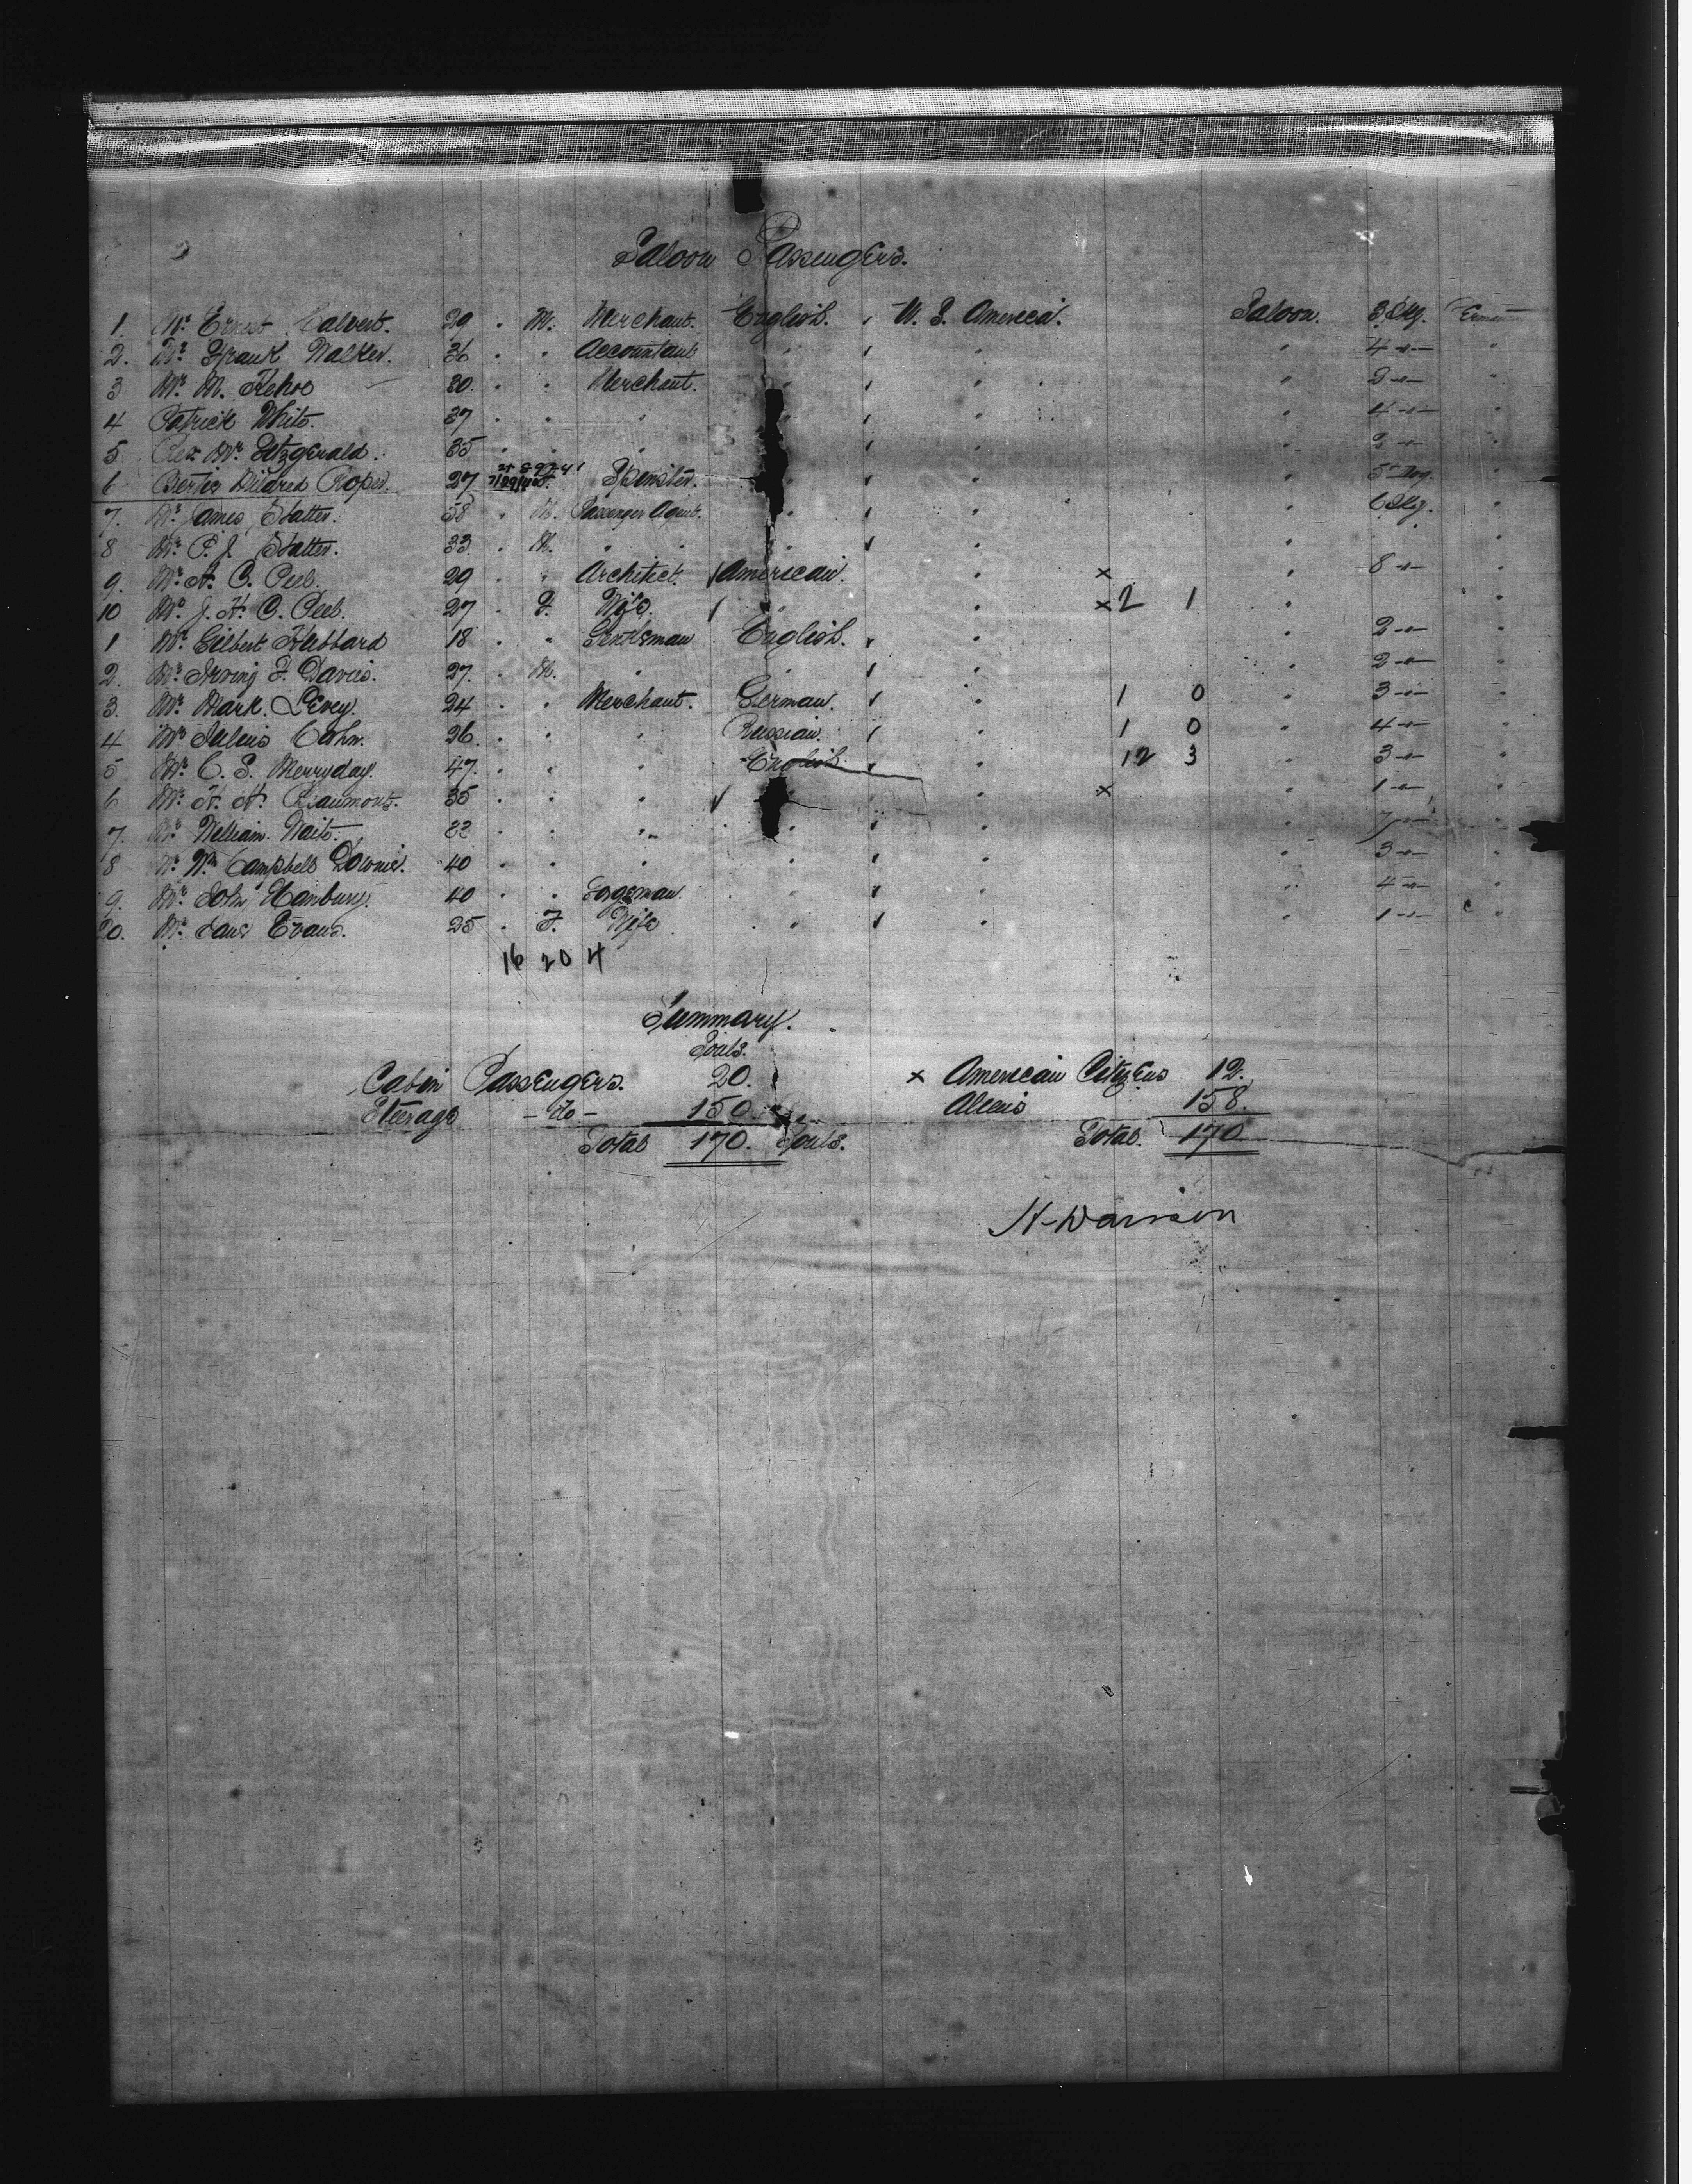 Saloon Passengers.
1. Mr. Ernest Calvert. 29 . M. Merchant. English. U. S. America. Saloon. 3 Pkg.
2. Mr. Frank Walker. 36 . " Accountant " " " 4 -"- "
3 Mr. M. Kehoe 30. . " Merchant. " " " 2 -"- "
4 Patrick White. 37 . " " " " 4 -"- "
5 Mr. Fitzgerald. 35 . " " " "
6 Mildred Roper. 27 Spinster. " " " "
7. Mr. James Slatter. 58 . M. Passenger Agent. " " " 6 Pkg. "
8 Mr. P. J. Slatter. 33 . M. " " " " "
9. Mr. A. C. Peel. 29 . " Architect. American. " x " 8 -"- "
10 J. A. C. Peel. 27 . F. Wife. " " x 2 1 " "
1 Mr. Gilbert Hubbard 18 . " Gentleman English. " " 2 -"- "
2. Mr. Irving F. Davies. 27. . M. " " " " 2 -"- "
3. Mr. Mark. Levey. 24 . " Merchant. German. " 1 0 " 3 -"- "
4 Mr. Julius Cohn. 26. . " " Russian. " 1 0 " 4 -"- "
5 Mr. C. S. Merryday. 47. . " " English. " 12 3 " 3 -"- "
6 Mr. H. A. Beaumont. 35 . " " " x " 1 -"- "
7. Mr. William. Waite. . " " " " " "
8 Mr. Wm Campbell Downie. 40 . " " " " " 3 -"- "
9. Mr. John Hanbury. 40 . " " " " 4 -"- "
20. Jane Evans. 25 . F. Wife " " " 1 -"- "
16 20 4
Summary.
Souls.
Cabin Passengers. 20. x American Citizens 12.
Steerage - do - 150. Aliens 158.
Total 170. Souls. Total. 170